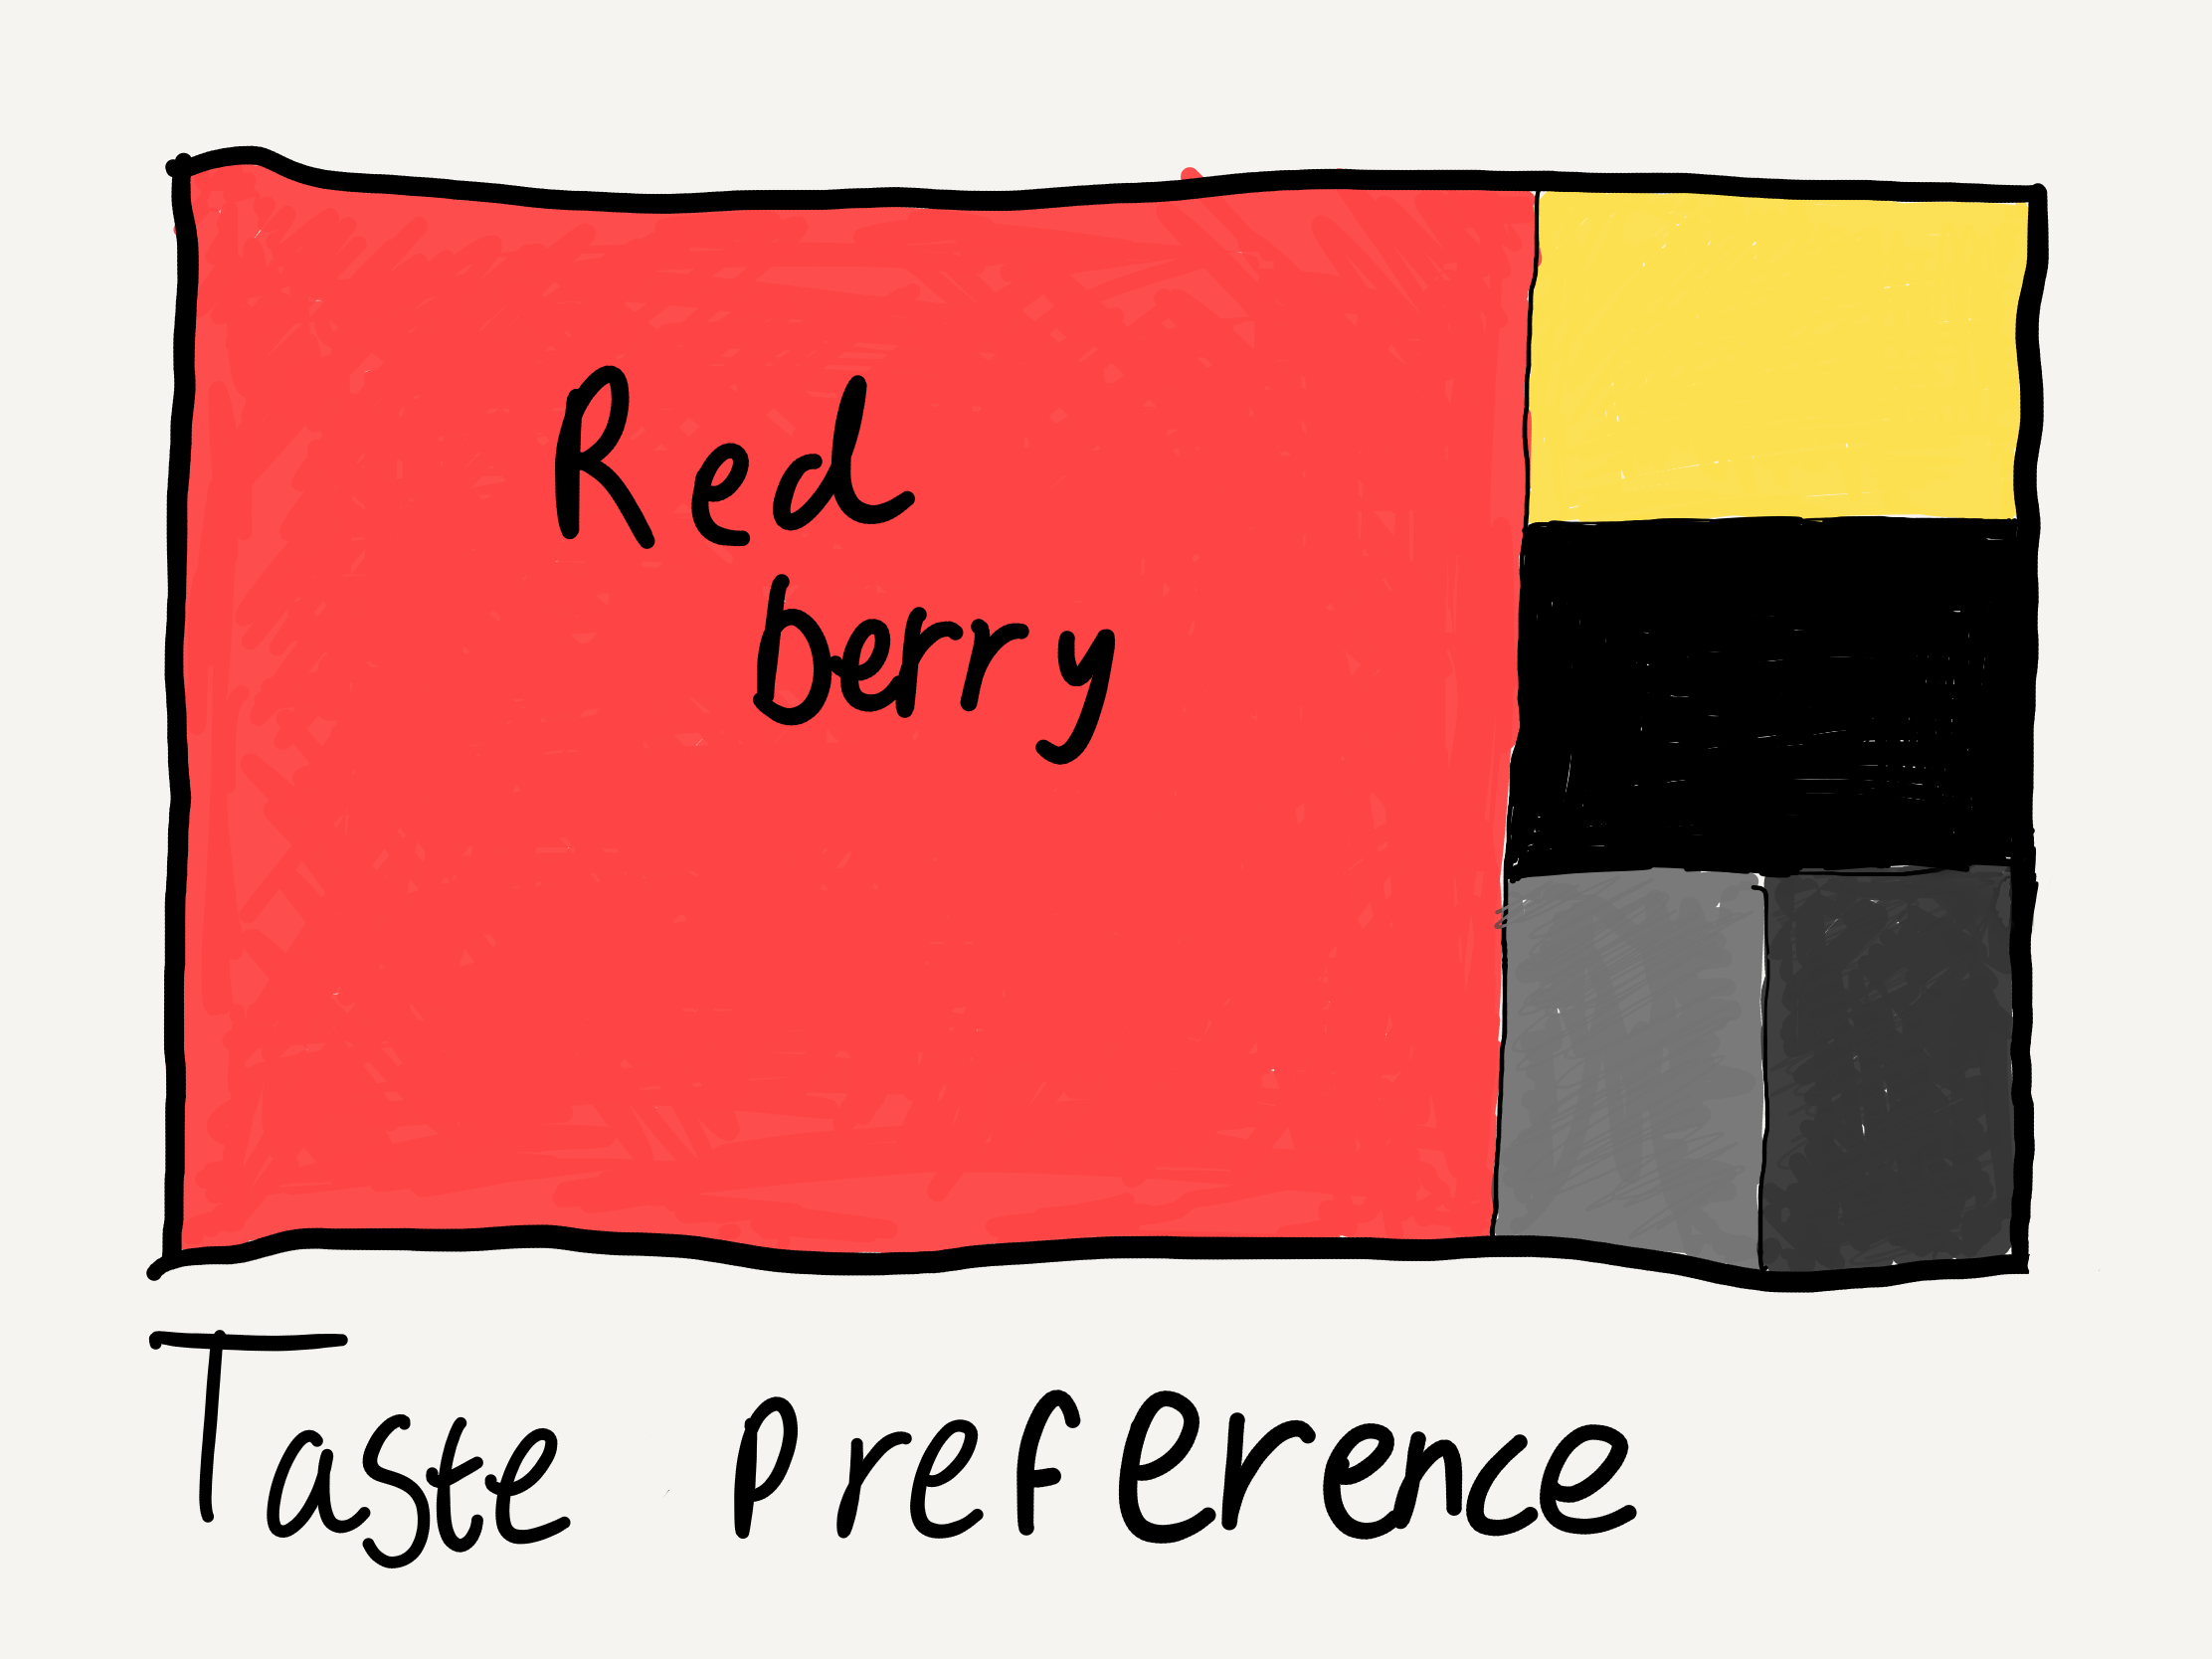 Red
berry
Taste Preference